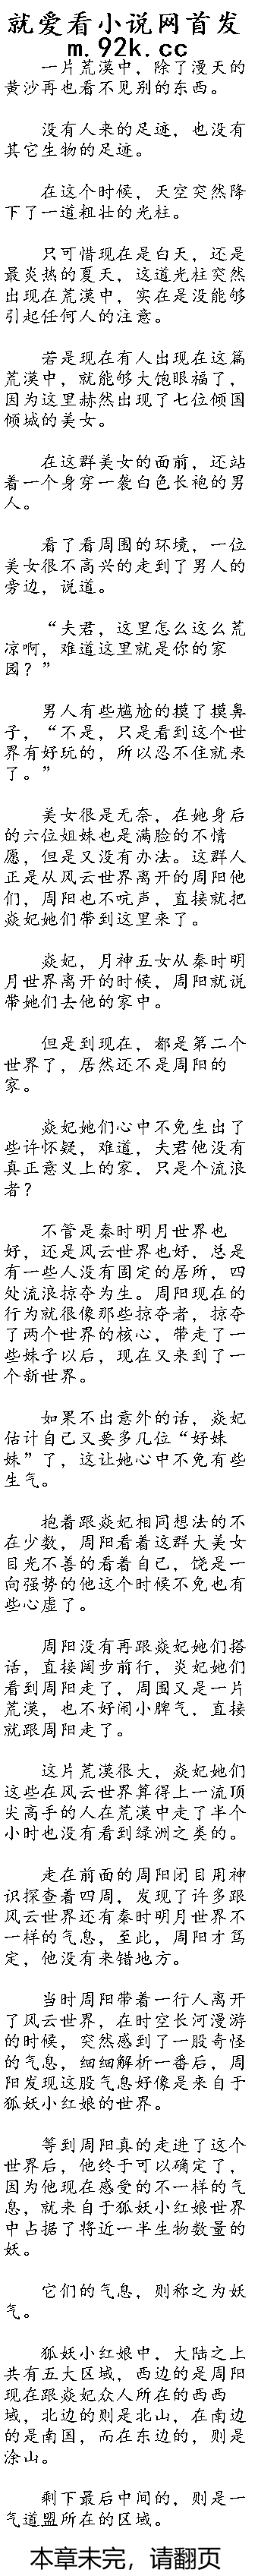 就爱看小说网首发
m.92k.cc
一片荒漠中，除了漫天的
黄沙再也看不见别的东西。
没有人来的足迹，也没有
其它生物的足迹。
在这个时候，天空突然降
下了一道粗壮的光柱。
只可惜现在是白天，还是
最炎热的夏天，这道光柱突然
出现在荒漠中，实在是没能够
引起任何人的注意。
若是现在有人出现在这篇
荒漠中，就能够大饱眼福了，
因为这里赫然出现了七位倾国
倾城的美女。
在这群美女的面前，还站
着一个身穿一袭白色长袍的男
人。
看了看周围的环境，一位
美女很不高兴的走到了男人的
旁边，说道。
“夫君，这里怎么这么荒
凉啊，难道这里就是你的家
园？”
男人有些尴尬的摸了摸鼻
子，“不是，只是看到这个世
界有好玩的，所以忍不住就来
了。”
美女很是无奈，在她身后
的六位姐妹也是满脸的不情
愿，但是又没有办法。这群人
正是从风云世界离开的周阳他
们，周阳也不吭声，直接就把
焱妃她们带到这里来了。
焱妃，月神五女从秦时明
月世界离开的时候，周阳就说
带她们去他的家中。
但是到现在，都是第二个
世界了，居然还不是周阳的
家。
焱妃她们心中不免生出了
些许怀疑，难道，夫君他没有
真正意义上的家，只是个流浪
者？
不管是秦时明月世界也
好，还是风云世界也好，总是
有一些人没有固定的居所，四
处流浪掠夺为生。周阳现在的
行为就很像那些掠夺者，掠夺
了两个世界的核心，带走了一
些妹子以后，现在又来到了一
个新世界。
如果不出意外的话，焱妃
估计自己又要多几位“好妹
妹”了，这让她心中不免有些
生气。
抱着跟焱妃相同想法的不
在少数，周阳看着这群大美女
目光不善的看着自己，饶是一
向强势的他这个时候不免也有
些心虚了。
周阳没有再跟焱妃她们搭
话，直接阔步前行，炎妃她们
看到周阳走了，周围又是一片
荒漠，也不好闹小脾气，直接
就跟周阳走了。
这片荒漠很大，焱妃她们
这些在风云世界算得上一流顶
尖高手的人在荒漠中走了半个
小时也没有看到绿洲之类的。
走在前面的周阳闭目用神
识探查着四周，发现了许多跟
风云世界还有秦时明月世界不
一样的气息，至此，周阳才笃
定，他没有来错地方。
当时周阳带着一行人离开
了风云世界，在时空长河漫游
的时候，突然感到了一股奇怪
的气息，细细解析一番后，周
阳发现这股气息好像是来自于
狐妖小红娘的世界。
等到周阳真的走进了这个
世界后，他终于可以确定了，
因为他现在感受的不一样的气
息，就来自于狐妖小红娘世界
中占据了将近一半生物数量的
妖。
它们的气息，则称之为妖
气。
狐妖小红娘中，大陆之上
共有五大区域，西边的是周阳
现在跟焱妃众人所在的西西
域，北边的则是北山，在南边
的是南国，而在东边的，则是
涂山。
剩下最后中间的，则是一
气道盟所在的区域。
本章未完，请翻页